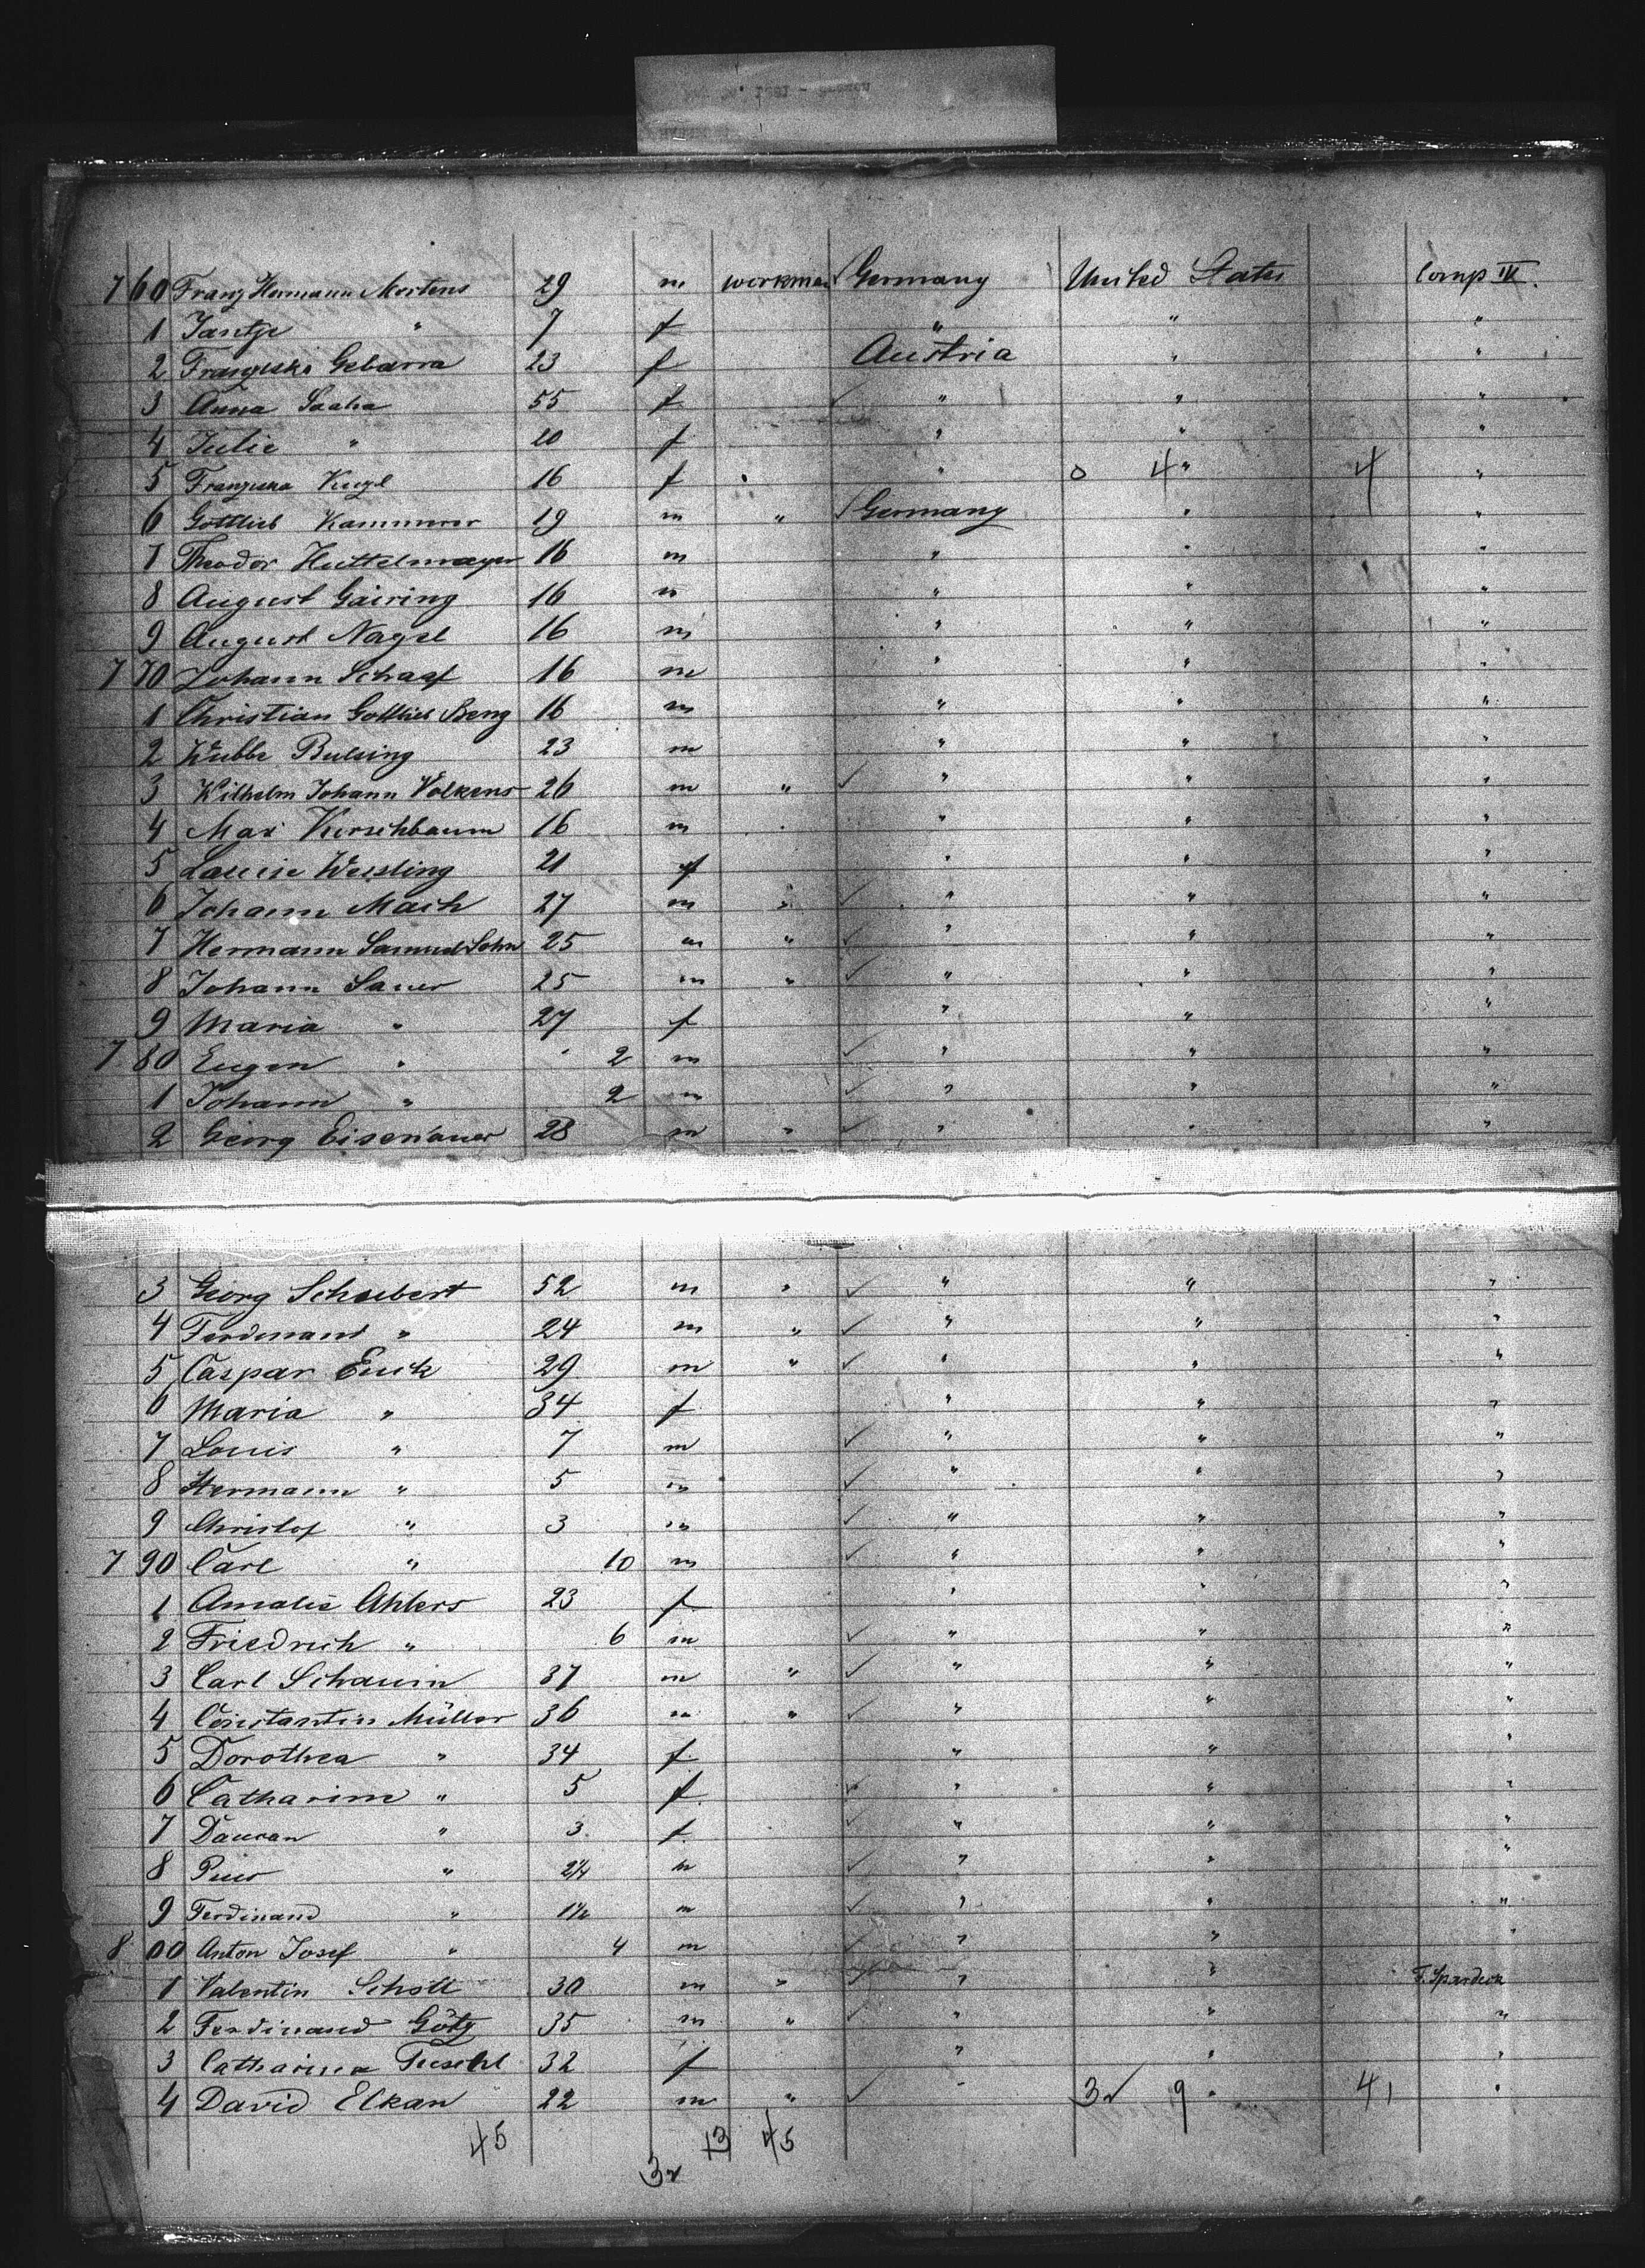 7 60 Franz Hermann Mortens 29 m workman Germany United States Comp IV.
1 Jantje " 7 f " " "
2 Franziska Gebarra 23 f Austria " "
3 Anna 55 f " " "
4 Julie " 20 f " " "
5 Franziska Kugl 16 f " 0 4 " 4 "
6 Gottlieb Kammerer 19 m " Germany " "
7 Theodor Huttelmayer 16 m " " "
8 August Gairing 16 m " " "
9 August Nagel 16 m " " "
7 70 Johann Schaaf 16 m " " "
1 Christian Gottlieb Beng 16 m " " "
2 Wubbe Bulsing 23 m " " "
3 Wilhelm Johann Volkens 26 m " " " "
4 Max Kirschbaum 16 m " " "
5 Louise Wessling 21 f " " "
6 Johann Mach 27 m " " " "
7 Hermann Samuel Sohn 25 m " " " "
8 Johann Sauer 25 m " " " "
9 Maria " 27 f " " "
7 80 Eugen " 2 m " " "
1 Johann " 2 m " " "
2 Georg Eisenauer 28 m " " " "
3 Georg Schubert 52 m " " " "
4 Ferdinand " 24 m " " " "
5 Caspar Euck 29 m " " " "
6 Maria " 34 f " " "
7 Louis " 7 m " " "
8 Hermann " 5 m " " "
9 Christof " 3 m " " "
7 90 Carl " 10 m " " "
1 Amalie Ahlers 23 f " " "
2 Friedrich " 6 m " " "
3 Carl Schauin 37 m " " " "
4 Constantin Müller 36 m " " " "
5 Dorothea " 34 f " " "
6 Catharine " 5 f " " "
7 " 3 f " " "
8 Pius " 2¼ m " " "
9 Ferdinand " 1½ m " " "
8 00 Anton Josef " 4 m " " "
1 Valentin Scholl 30 m " " " F. Spardeck
2 Ferdinand Götz 35 m " " " "
3 Catharina 32 f " " "
4 David Elkan 22 m " " 32 9 " 41 "
45 13 45
32